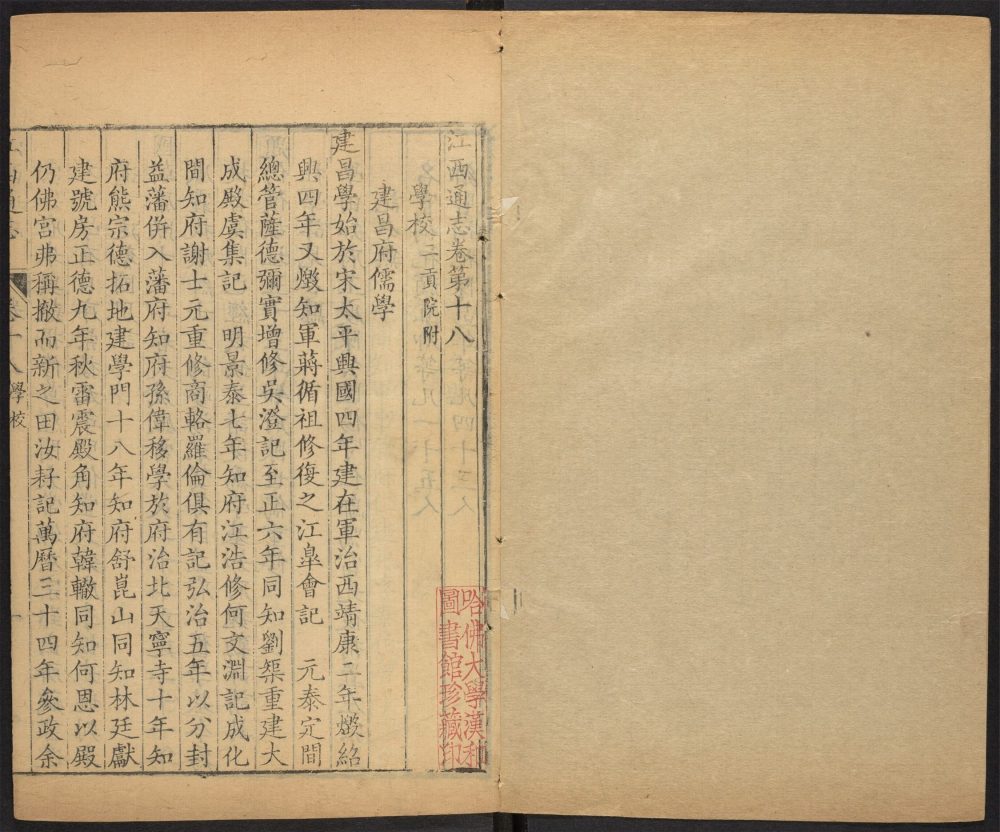 江西通志卷第十八
學校二貢院附
建昌府儒學
建昌學始於宋太平興國四年建在軍治西靖康二年燬紹
興四年又燬知軍蔣循祖修復之江臯會記　元泰定間
總管薩德彌實增修吳澄記至正六年同知劉槩重建大
成殿虞集記　明景泰七年知府江浩修何文淵記成化
間知府謝士元重修商輅羅倫俱有記弘治五年以分封
益藩併入藩府知府孫偉移學於府治北天寧寺十年知
府熊宗德拓地建學門十八年知府舒崑山同知林廷獻
建號房正德九年秋雷震殿角知府韓轍同知何恩以殿
仍佛宮弗稱撤而新之田汝耔記萬曆三十四年參政余
江西通志
卷十八學校
一
哈佛大學漢和
圖書館珍藏印